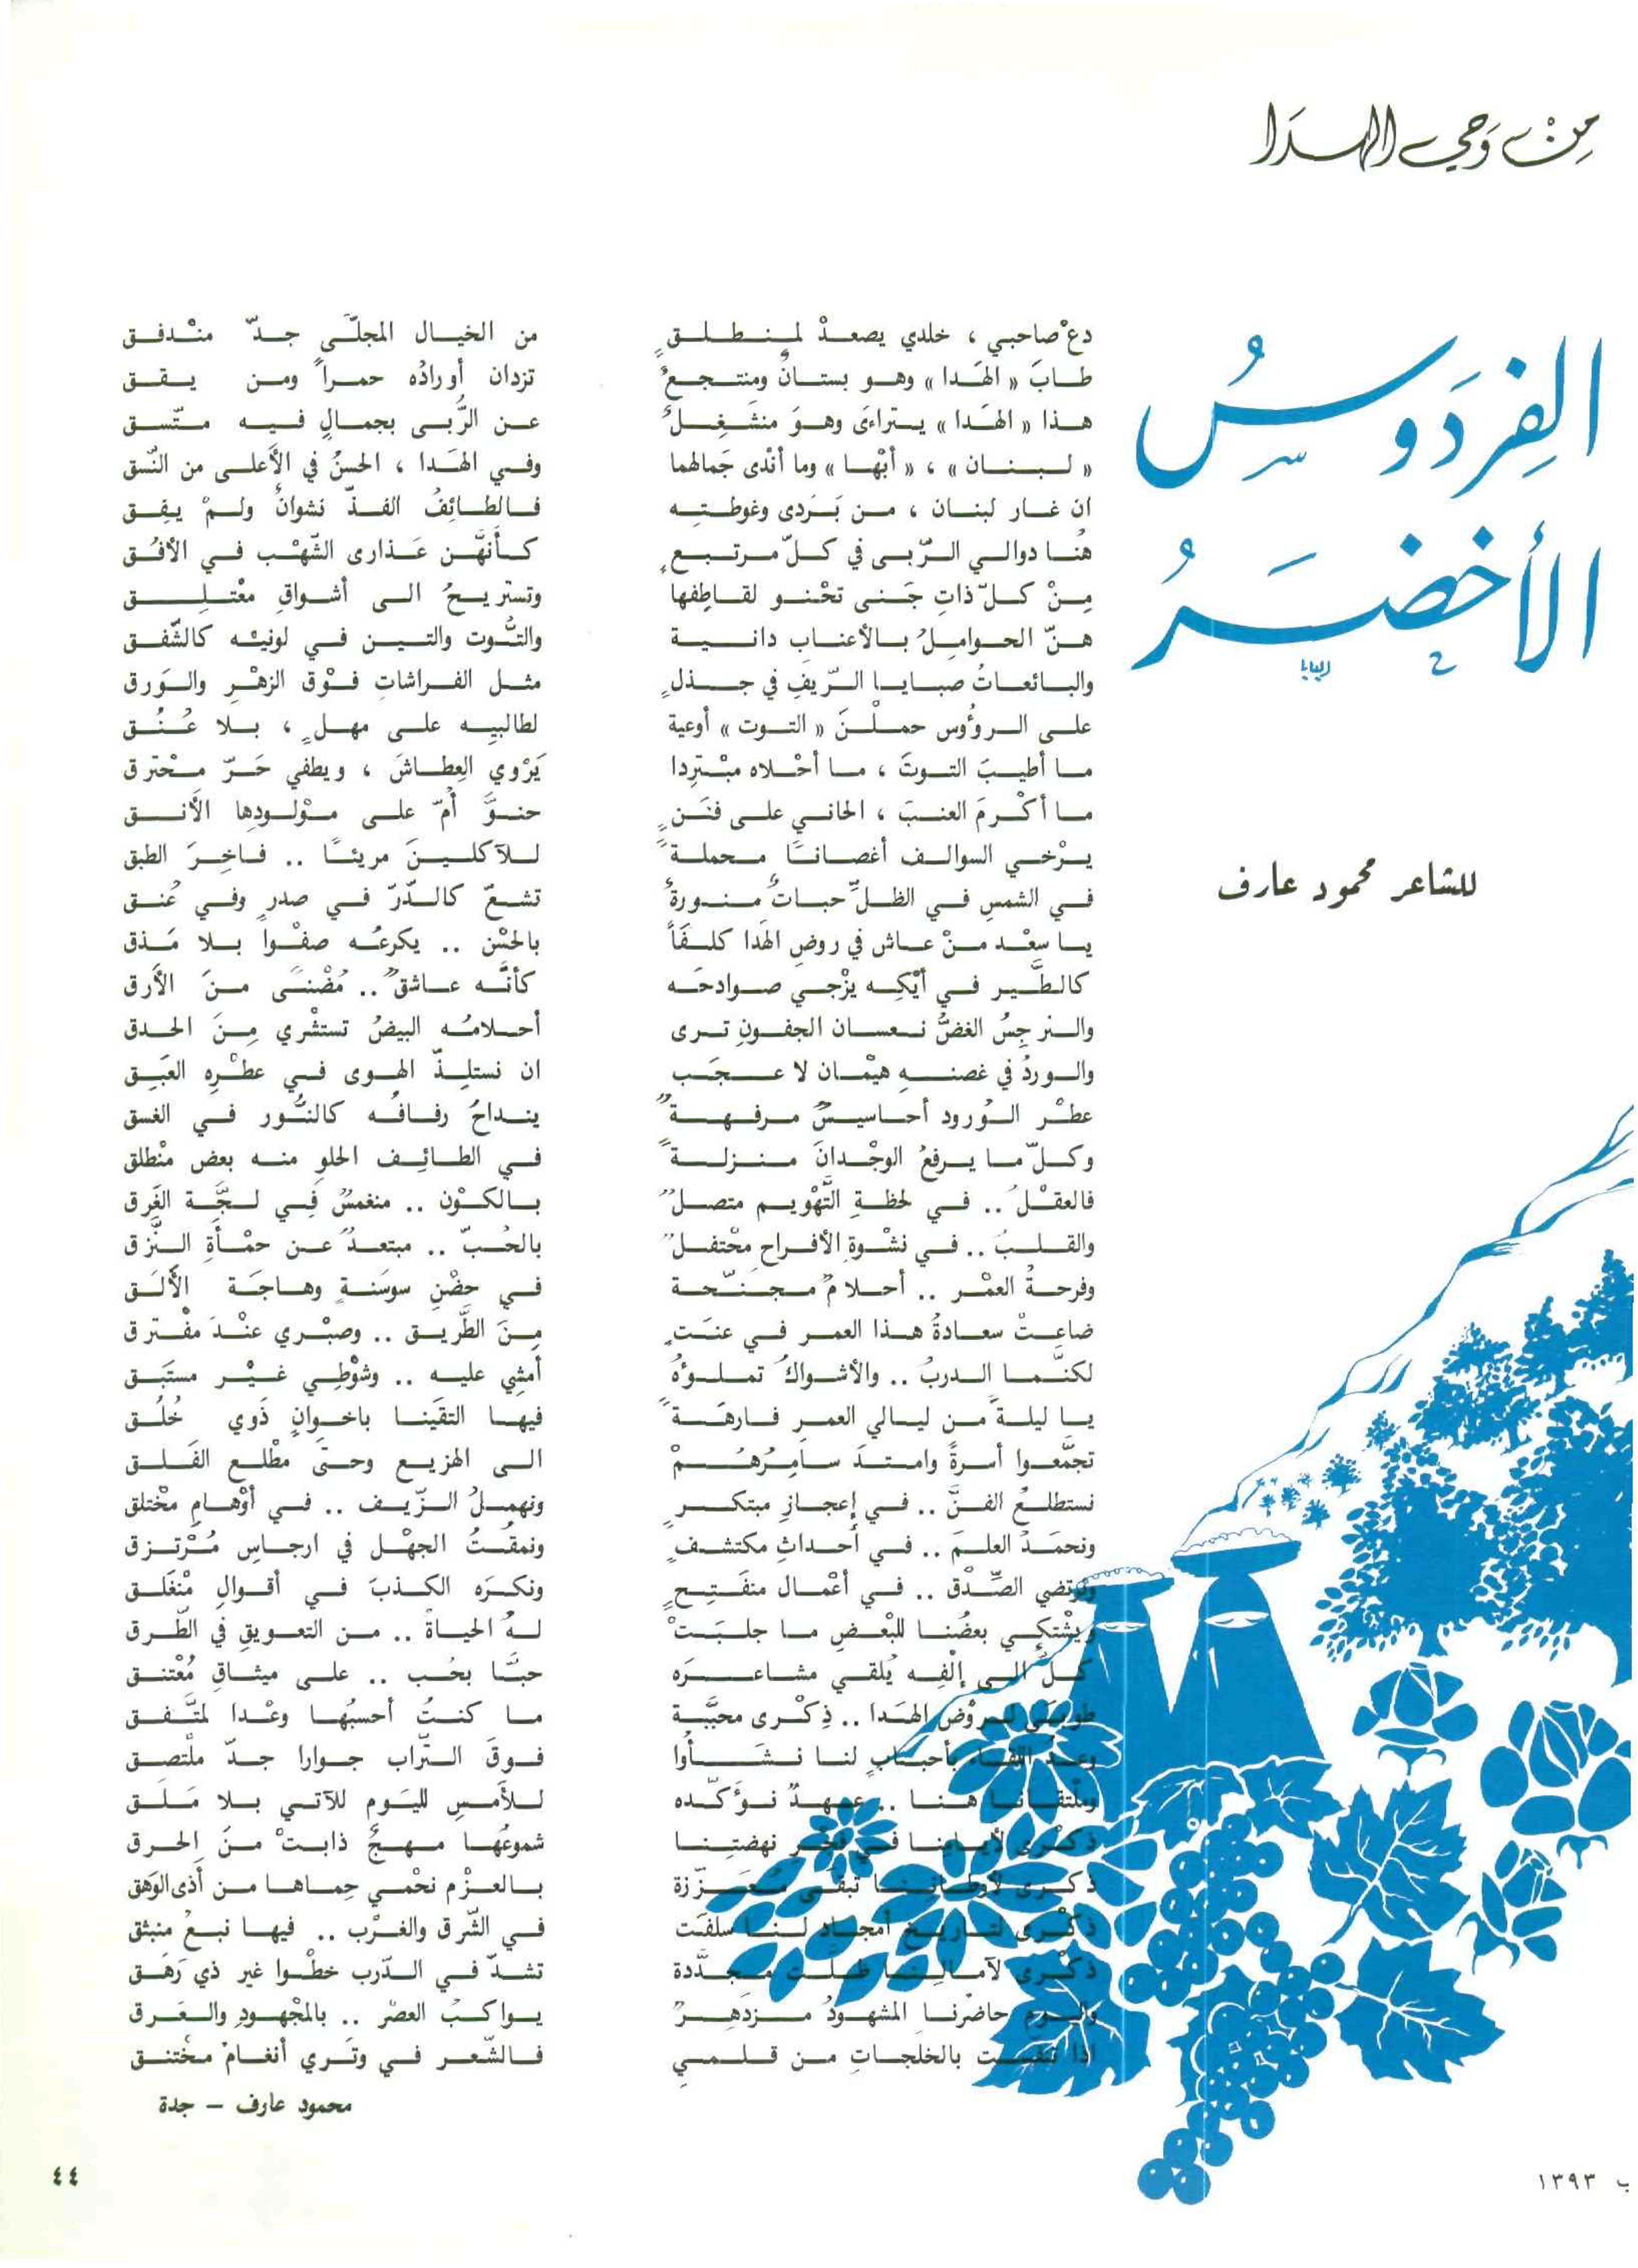 من وحي الهدا
الفردوس
الأخضر
للشاعر محمود عارف
دعْ صاحبي ، خلدي يصعدْ لمنطلقٍ من الخيال المجلّى جدّ منْدفق
طابَ « الهَدا » وهو بستانٌ ومنتجعٌ تزدان أورادُه حمراً ومن يقق
هذا « الهَدا » يتراءى وهوَ منشغلٌ عن الرُّبى بجمالٍ فيه متّسق
« لبنان » ، « أبْها » وما أنْدى جَمالهما وفي الهَدا ، الحسنُ في الأعلى من النّسق
ان غار لبنان ، من بَرَدى وغوطته فالطائفُ الفذّ نشوانٌ ولمْ يفِق
هُنا دوالي الرّبى في كلّ مرتبعٍ كأنهّن عَذارى الشّهْب في الأفُق
مِنْ كلّ ذاتِ جَنى تحْنو لقاطِفها وتسْتريحُ الى أشواقِ مغْتلِق
هنّ الحواملُ بالأعناب دانية والتُّوت والتين في لونيْه كالشّفق
والبائعاتُ صبايا الرّيفِ في جذلٍ مثل الفراشاتِ فوْق الزهْرِ والوَرق
على الروؤس حملْنَ « التوت » أوعية لطالبيه على مهلٍ ، بلا عُنُق
ما أطيبَ التوتَ ، ما أحْلاه مبْتردا يَرْوي العِطاشَ ، ويطفي حَرّ محْترق
ما أكْرمَ العنبَ ، الحاني على فنَنٍ حنوَّ أمّ على موْلودها الأنق
يرْخي السوالف أغصاناً محملةً للآكلينَ مريئاً .. فاخِرَ الطبق
في الشمسِ في الظلّ حباتٌ منورةٌ تشعّ كالدّرّ في صدرٍ وفي عُنق
يا سعْد منْ عاش في روضِ الهَدا كلفاً بالحسْن .. يكرعُه صفْواً بلا مَذق
كالطّير في أيْكِه يزْجي صوادحَه كأنّه عاشقٌ .. مُضْنىً منَ الأرق
والنرجِسُ الغضُّ نعسان الجفونِ ترى أحلامُه البيضُ تستشْري مِنَ الحدق
والوردُ في غصنهِ هيْمان لا عجَب ان نستلِذّ الهوى في عطْرِه العَبِق
عطْر الوُرود أحاسيسٌ مرفهةٌ ينداحُ رفافُه كالنُّور في الغسق
وكلّ ما يرفعُ الوجْدانَ منزلةً في الطائِف الحلو منه بعض منْطلق
فالعقْلُ .. في لحظةِ التّهْويم متصلٌ بالكوْن .. منغمسٌ في لجّة الغَرق
والقلبُ .. في نشْوةِ الأفراح محْتفلٌ بالحُبّ .. مبتعدٌ عن حمْأةِ النّزق
وفرحةُ العمْر .. أحلامٌ مجنّحة في حضْنِ سوسَنةٍ وهاجَة الألَق
ضاعتْ سعادةُ هذا العمر في عنَتٍ مِنَ الطّريق .. وصبْري عنْدَ مفْترق
لكنّما الدربُ .. والأشواكُ تملوُهُ أمشي عليه .. وشوْطِي غيْر مستَبق
يا ليلةً من ليالي العمر فارهَةً فيها التقَينا باخوانٍ ذَوي خُلُق
تجمّعوا أسرةً وامتدَ سامِرُهُمْ الى الهزيع وحتى مطْلع الفَلق
نستطلعُ الفنَّ .. في إعجازِ مبتكرٍ ونهمِلُ الزّيف .. في أوْهامِ مخْتلق
ونحمَدُ العلمَ .. في أحداثِ مكتشفٍ ونمقُتُ الجهْل في ارجاسِ مُرْتزق
ونرتضي الصّدْق .. في أعْمال منفَتِحٍ ونكرَه الكذبَ في أقوالِ مُنْغلق
ويشْتكي بعضُنا للبْعضِ ما جلبَتْ لهُ الحياة .. من التعويقِ في الطّرق
كلٌّ الى إلْفِه يُلقي مشاعرَه حبّاً بحُب .. على ميثاقِ مُعْتنق
طوبى لروْض الهَدا .. ذِكْرى محبَّبة ما كنتُ أحسبُها وعْدا لمتّفق
وعند اللقاء بأحبابٍ لنا نشأوا فوقَ التّراب جوارا جدّ ملْتصق
وملْتقانا هنا .. عهدٌ نؤكّده للأمسِ لليَوم للآتي بلا مَلَق
ذكْرى لأيامنا في فجْر نهضتِنا شموعُها مهجٌ ذابتْ منَ الحرق
ذكرى لأوطاننا تبقَى مُعزّزة بالعزْم نحْمي حِماها من أذى الوَهق
ذكْرى لتاريخ أمجاد لنا سلفَت في الشّرق والغرْب .. فيها نبعُ منبثق
ذكْرى لآمالنا ظلّت مجدّدة تشدّ في الدّرب خطْوا غير ذي رَهَق
واليوم حاضرُنا المشهودُ مزدهرٌ يواكبُ العصْر .. بالمجْهودِ والعَرق
اذا تنفست بالخلجاتِ من قلمي فالشّعر في وتَري أنغامُ مخْتنق
محمود عارف – جدة
ب ١٣٩٣
٤٤